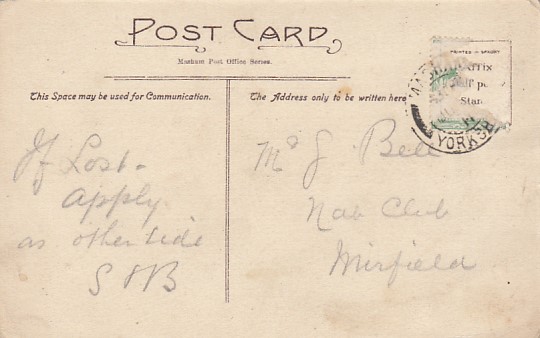 POST CARD
Masham Post Office Series.
This Space may be used for Communication.
The Address only to be written here
PRINTED IN SAXONY
AFFIX
Half pe
Stam
YORKS
If Lost -
apply
as other side
S H B
Mr J. Bell
Nab Club
Mirfield